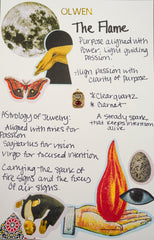 OLWEN
The Flame
Purpose aligned with
Power, Light guiding
passion.
·High passion with
clarity of purpose
*Clear quartz
* Garnet
Astrology of Jewelry:
Aligned with Aries for
Passion
Sagittarius for vision
Virgo for focused intention
Carrying the spark of
fire signs and the focus
of air signs.
A steady spark,
that keeps intention
alive